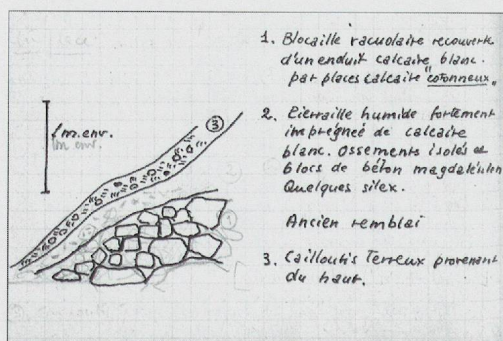 1. Blocaille vacuolaire recouverte
d'un enduit calcaire blanc.
par places calcaire "cotonneux"
2. Pierraille humide fortement
imprégnée de calcaire
blanc. Ossements isolés et
blocs de béton magdalénien
Quelques silex.
Ancien remblai
3. Cailloutis terreux provenant
du haut.
1m. env.
1m env.
3
1